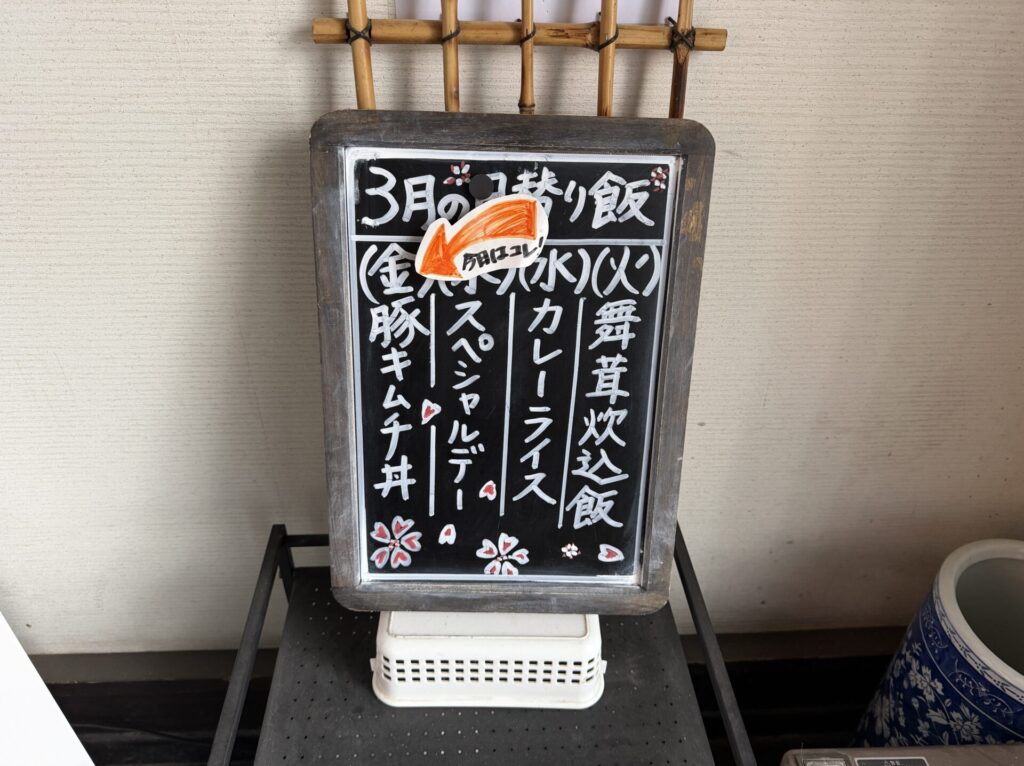 3月の日替り飯
今日はコレ!
(火)
舞茸炊込飯
(水)
カレーライス
(木)
スペシャルデー
(金)
豚キムチ丼